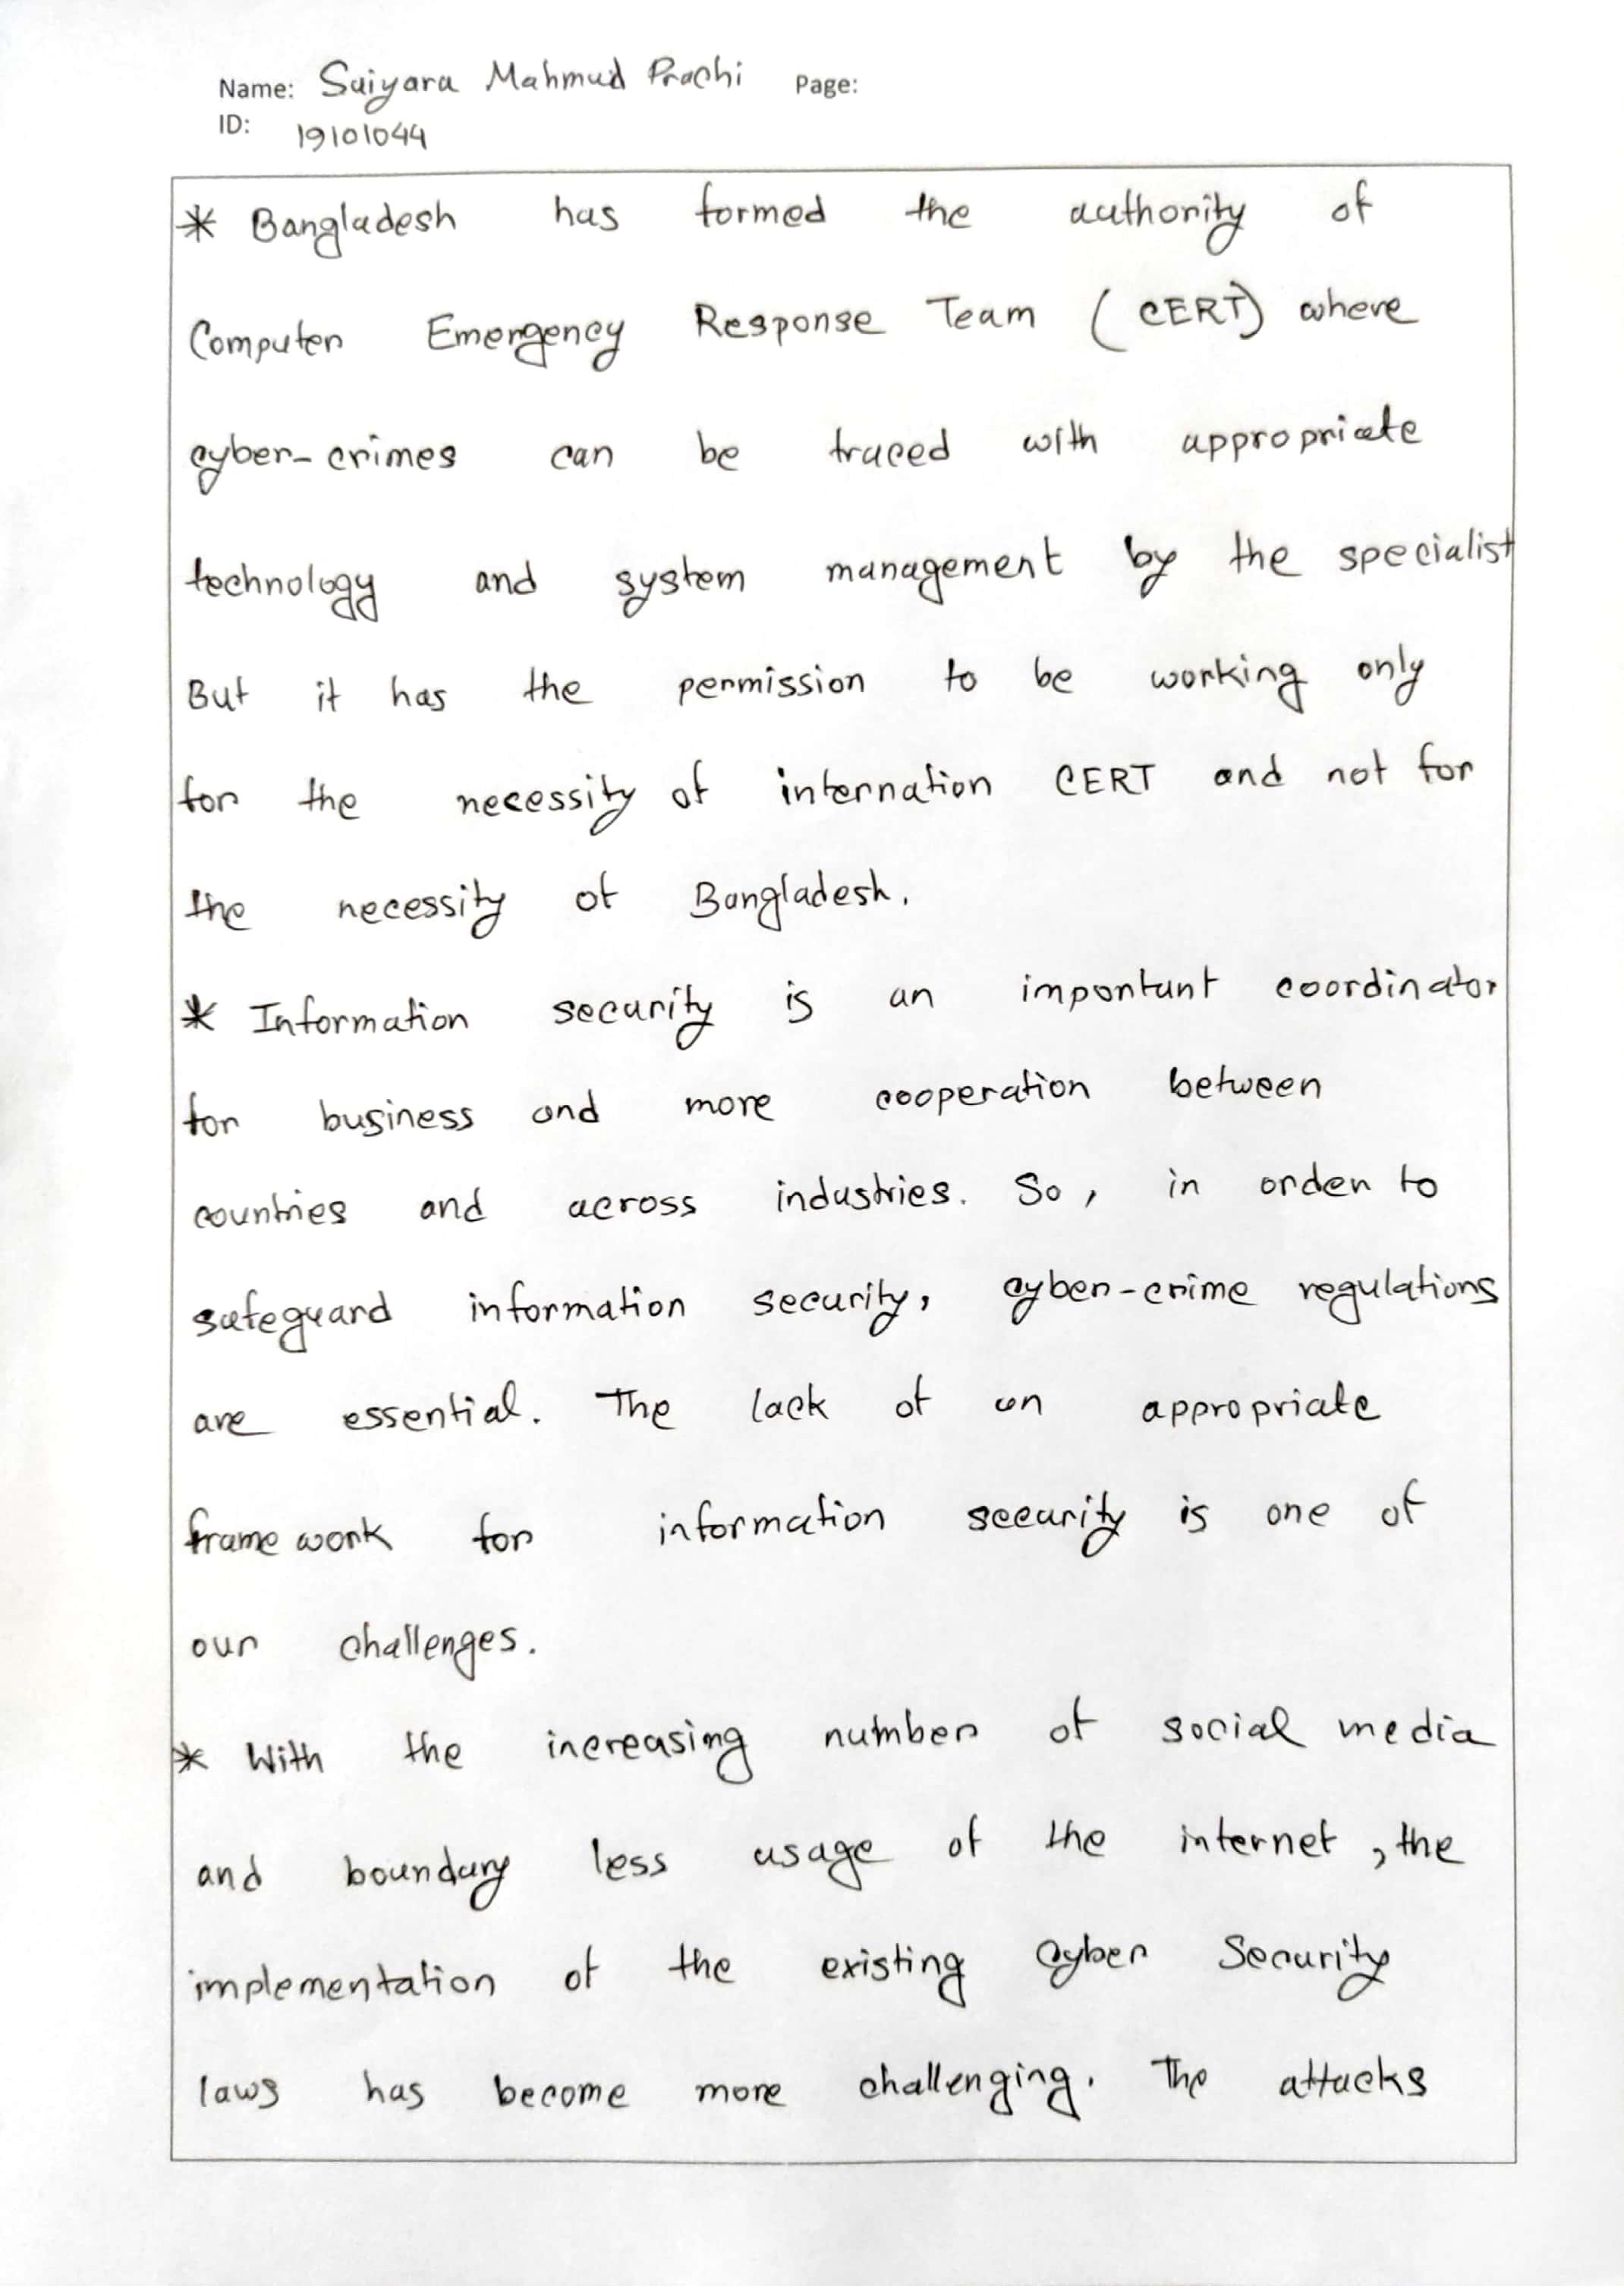 Name: Saiyara Mahmud Prachi Page:
ID: 19101044
* Bangladesh has formed the authority of
Computer Emergency Response Team (CERT) where
cyber-crimes can be traced with appropriate
technology and system management by the specialist
But it has the permission to be working only
for the necessity of internation CERT and not for
the necessity of Bangladesh.
* Information security is an important coordinator
for business and more cooperation between
countries and across industries. So, in order to
safeguard information security, cyber-crime regulations
are essential. The lack of an appropriate
frame work for information security is one of
our challenges.
* With the increasing number of social media
and boundary less usage of the internet, the
implementation of the existing Cyber Security
laws has become more challenging. The attacks